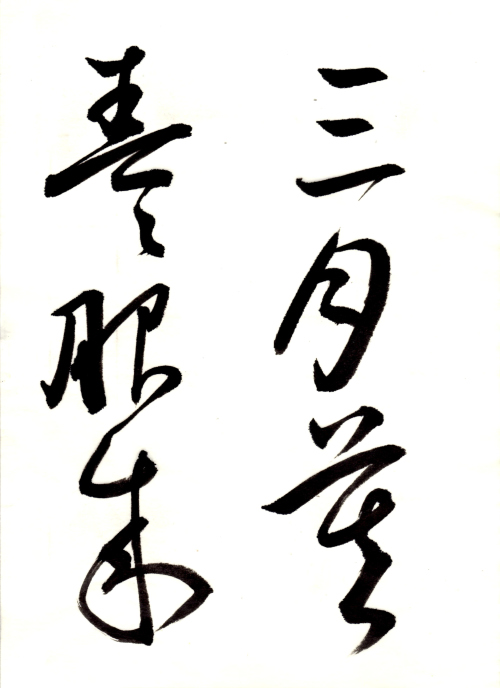 三月莫
春服成